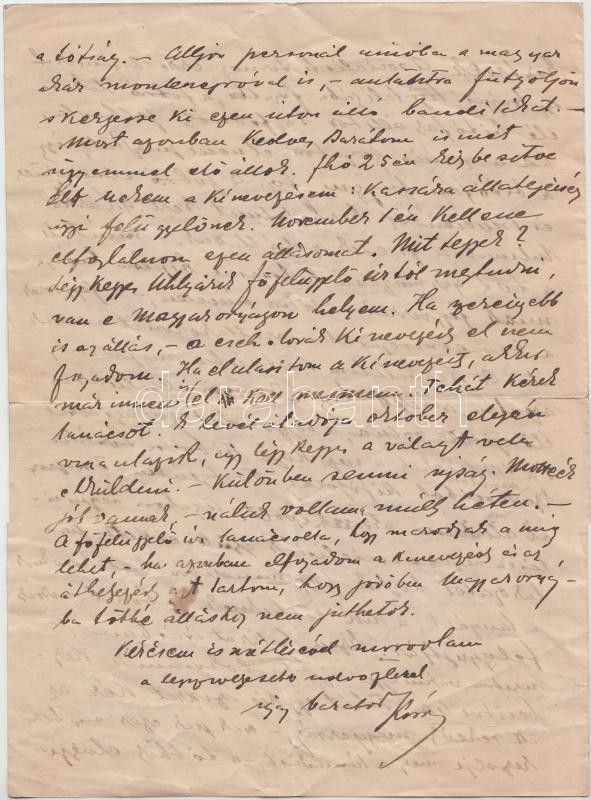 a tótság. – Álljon perszonál unióba a magyar
akár montenegróval is, –
s kergesse ki ezen úton álló banditákat. –
Most azonban Kedves Barátom ismét
ügyemmel elő állok. f hó 25 én kézbesítve
lett nekem a Kinevezésem: Kassára állategészség
ügyi felügyelőnek. November 1 én Kellene
elfoglalnom ezen állásomat. Mit tegyek?
Légy Kegyes főfelügyelő úrtól megtudni,
van e Magyarországon helyem. Ha szerényebb
is az állás, – a cseh-tóvák Kinevezést el nem
fogadom. Ha elutasítom a Kinevezést, akkor
már innen el kell mennem. Tehát Kérek
tanácsot. E levél átadója október elején
vissza utazik, úgy légy kegyes a választ vele
elküldeni. – Különben semmi ujság.
jól vannak – nálunk voltam múlt héten. –
A főfelügyelő úr tanácsolta, hogy maradjak a míg
lehet, – ha azonban elfogadom a kinevezést és az
áthelyezést azt tartom, hogy jövőben Magyarország-
ba többé álláshoz nem juthatok.
Kérésem ismétlésével maradtam
a legszívesebb üdvözlettel
igaz barátod
darabanth